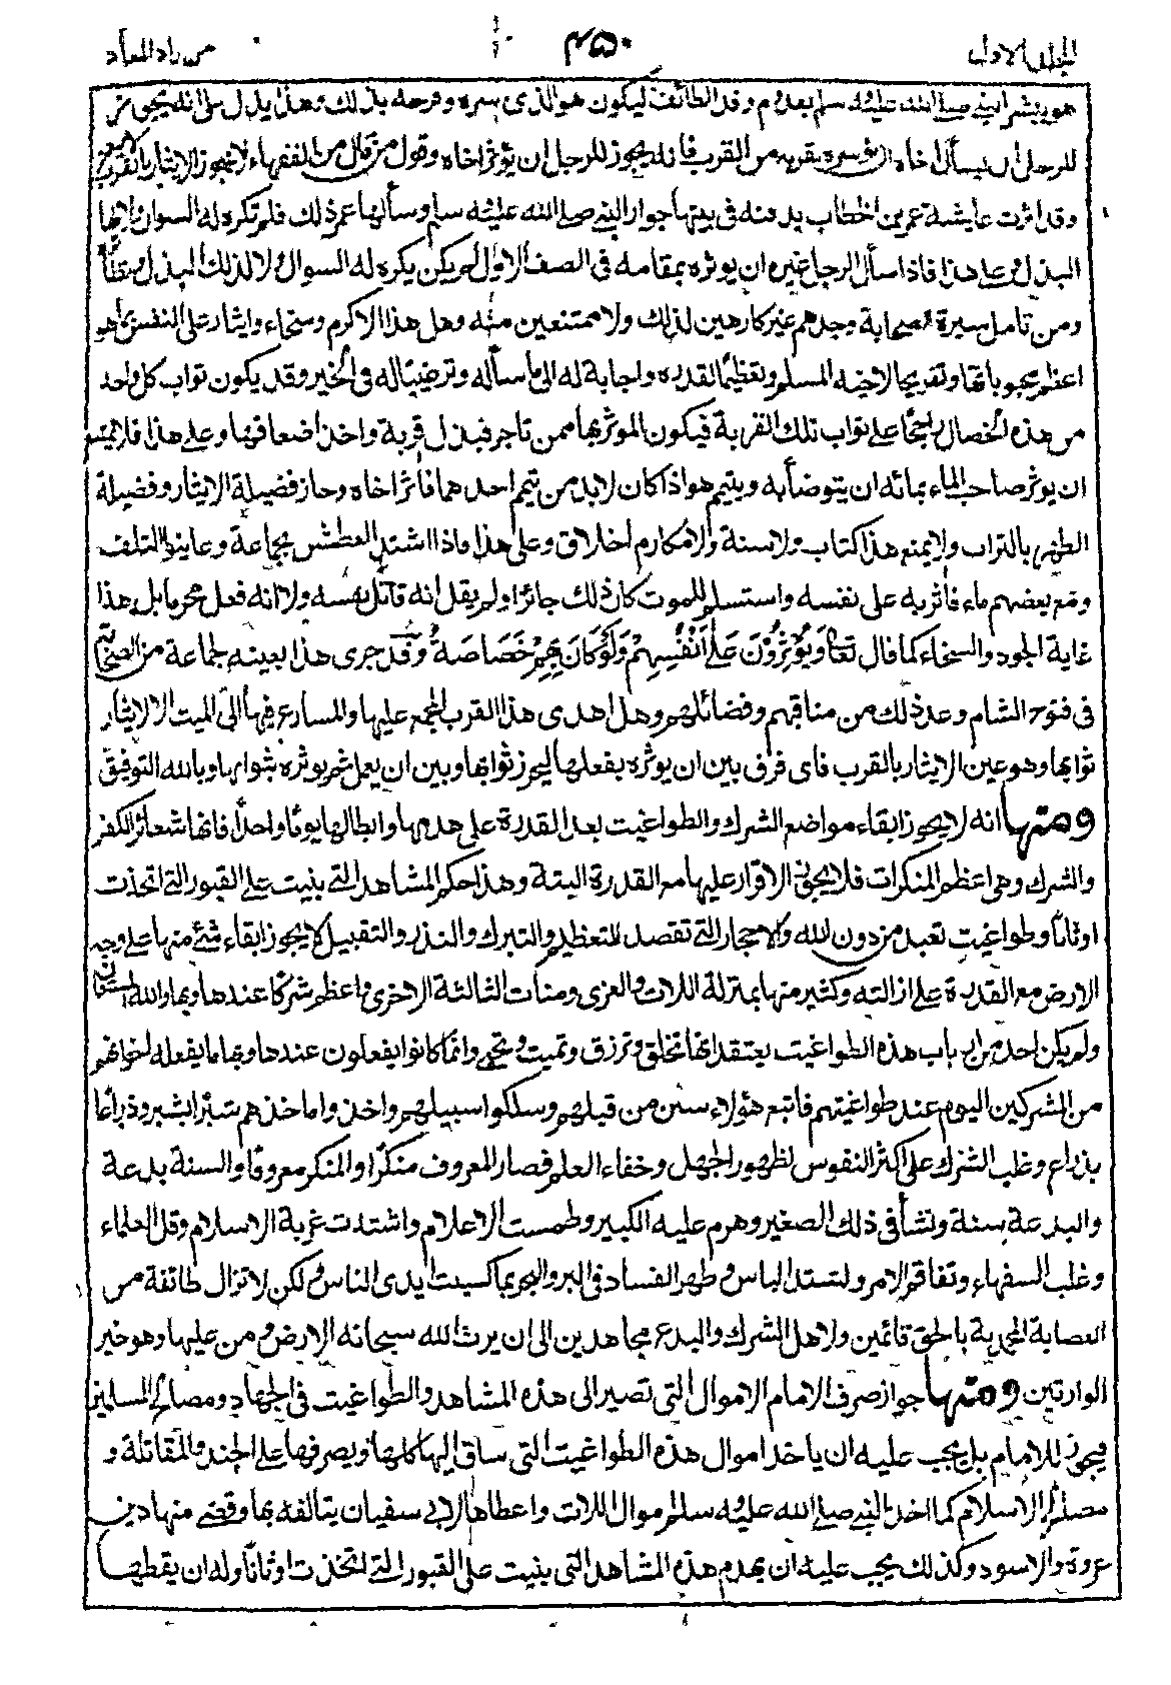 المجلد الاول ۴۵۰ من زاد المعاد
هو يبشر النبي صلى الله عليه وسلم بقدوم وفد الطائف ليكون هو الذى بشره وفرحه بذلك وهذا يدل على انه يجوز
للرجل ان يسأل اخاه ان يؤثره بقربة من القرب فانه يجوز للرجل ان يؤثر اخاه وقول من قال من الفقهاء لا يجوز الايثار بالقرب لا يصح
وقد اثرت عايشة عمر بن الخطاب بدفنه فى بيتها جوار النبي صلى الله عليه وسلم وسألها عمر ذلك فلم تكره له السوال ولا لها
البذل وعلى هذا فاذا سأل الرجل غيره ان يوثره بمقامه فى الصف الاول لم يكن يكره له السوال ولا لذلك البذل ونظائره
ومن تامل سيرة الصحابة وجدهم غير كارهين لذلك ولا ممتنعين منه وهل هذا الا كرم وسخاء وايثار على النفس بما هو
اعظم محبوباتها وتفريحا لاخيه المسلم وتعظيما لقدره واجابة له الى ما سأله وترغيبا له فى الخير وقد يكون ثواب كل واحد
من هذه الخصال راجحا على ثواب تلك القربة فيكون الموثر بها ممن تاجر فبذل قربة واخذ اضعافها وعلى هذا فلا يمتنع
ان يوثر صاحب الماء بمائه ان يتوضأ به ويتيمم هو اذا كان لابد من تيمم احدهما فأثر اخاه وحاز فضيلة الايثار وفضيلة
الطهر بالتراب ولا يمنع هذا كتاب ولا سنة ولا مكارم اخلاق وعلى هذا فاذا اشتد العطش بجماعة وعاينوا التلف
ومع بعضهم ماء فأثر به على نفسه واستسلم للموت كان ذلك جائزا ولم يقل انه قاتل نفسه ولا انه فعل محرما بل هذا
غاية الجود والسخاء كما قال تعالى وَيُؤْثِرُوْنَ عَلٰى اَنْفُسِهِمْ وَلَوْ كَانَ بِهِمْ خَصَاصَةٌ وقد جرى هذا بعينه لجماعة من الصحابة
فى فتوح الشام وعد ذلك من مناقبهم وفضائلهم وهل اهدى هذا القرب المجمع عليها والمسارع فيها الى الميت الا الايثار
ثوابها وهو عين الايثار بالقرب فاى فرق بين ان يوثره بفعلها ليحرز ثوابها وبين ان يعمل ثم يوثره بثوابها وبالله التوفيق
ومنها انه لا يجوز ابقاء مواضع الشرك والطواغيت بعد القدرة على هدمها وابطالها يوما واحدا فانها شعائر الكفر
والشرك وهى اعظم المنكرات فلا يجوز الاقرار عليها مع القدرة البتة وهذا حكم المشاهد التى بنيت على القبور التى اتخذت
اوثانا وطواغيت تعبد من دون الله والاحجار التى تقصد للتعظيم والتبرك والنذر والتقبيل لا يجوز ابقاء شئ منها على وجه
الارض مع القدرة على ازالته وكثير منها بمنزلة اللات والعزى ومنات الثالثة الاخرى واعظم شركا عندها وبها والله المستعان
ولم يكن احد من ارباب هذه الطواغيت يعتقد انها تخلق وترزق وتميت وتحيى وانما كانوا يفعلون عندها وبها ما يفعله اخوانهم
من المشركين اليوم عند طواغيتهم فاتبع هؤلاء سنن من قبلهم وسلكوا سبيلهم واخذوا ماخذهم شبرا بشبر وذراعا
بذراع وغلب الشرك على اكثر النفوس لظهور الجهل وخفاء العلم فصار المعروف منكرا والمنكر معروفا والسنة بدعة
والبدعة سنة ونشأ فى ذلك الصغير وهرم عليه الكبير وطمست الاعلام واشتدت غربة الاسلام وقل العلماء
وغلب السفهاء وتفاقم الامر واشتد الباس وظهر الفساد فى البر والبحر بما كسبت ايدى الناس ولكن لا تزال طائفة من
العصابة المحمدية بالحق قائمين ولاهل الشرك والبدع مجاهدين الى ان يرث الله سبحانه الارض ومن عليها وهو خير
الوارثين ومنها جواز صرف الامام الاموال التى تصير الى هذه المشاهد والطواغيت فى الجهاد ومصالح المسلمين
فيجوز للامام بل يجب عليه ان ياخذ اموال هذه الطواغيت التى ساق اليها كلها ويصرفها على الجند والمقاتلة و
مصالح الاسلام كما اخذ النبي صلى الله عليه وسلم اموال اللات واعطاها لابى سفيان يتالفه بها وقضى منها دين
عروة والاسود وكذلك يجب عليه ان يهدم هذه المشاهد التى بنيت على القبور التى اتخذت اوثانا وله ان يقطعها